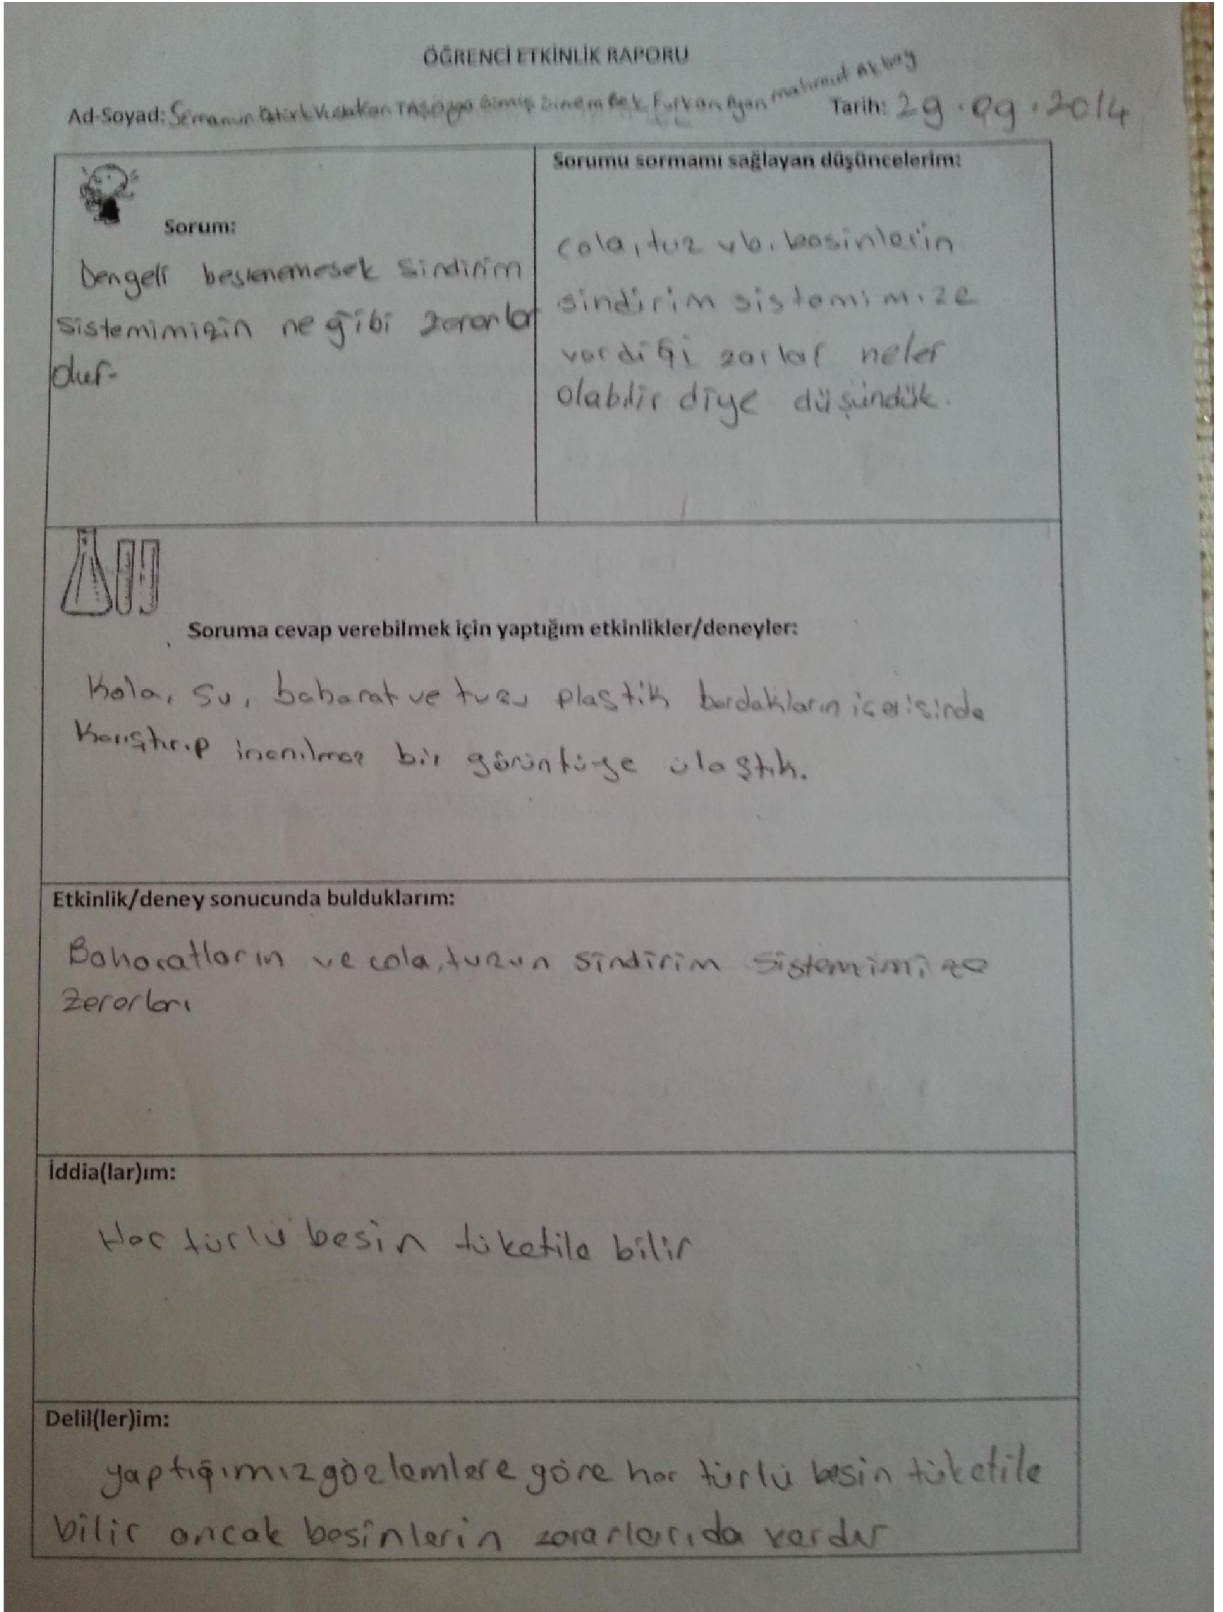 ÖĞRENCİ ETKİNLİK RAPORU
Ad-Soyad: Sinem Bek Furkan Ayan Mahmut Akbay
Tarih: 29.09.2014
Sorum:
Dengeli beslenemesek sindirim
sistemimizin ne gibi zararlar
olur.
Sorumu sormamı sağlayan düşüncelerim:
cola, tuz vb. besinlerin
sindirim sistemimize
verdiği zarlar neler
olabilir diye düşündük.
Soruma cevap verebilmek için yaptığım etkinlikler/deneyler:
Kola, su, baharat ve tuzu plastik bardakların içerisinde
Karıştırıp inanılmaz bir görüntüye ulaştık.
Etkinlik/deney sonucunda bulduklarım:
Baharatların ve cola, tuzun sindirim sistemimize
zararları
İddia(lar)ım:
Her türlü besin tüketile bilir
Delil(ler)im:
yaptığımız gözlemlere göre her türlü besin tüketile
bilir ancak besinlerin zararlarıda vardır